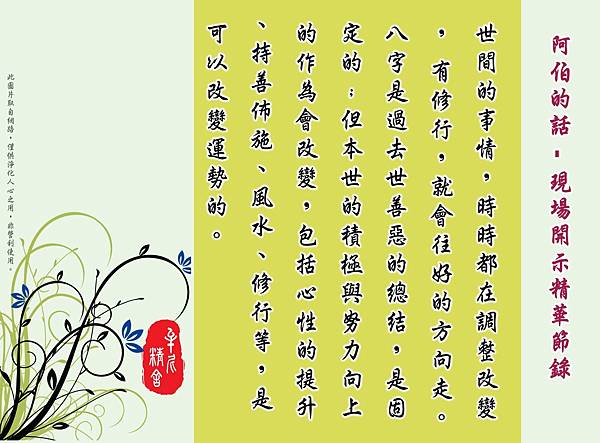 阿伯的話-現場開示精華節錄
世間的事情，時時都在調整改變
，有修行，就會往好的方向走。
八字是過去世善惡的總結，是固
定的；但本世的積極與努力向上
的作為會改變，包括心性的提升
、持善佈施、風水、修行等，是
可以改變運勢的。
精舍
此圖片取自網路，僅供淨化人心之用，非營利使用。